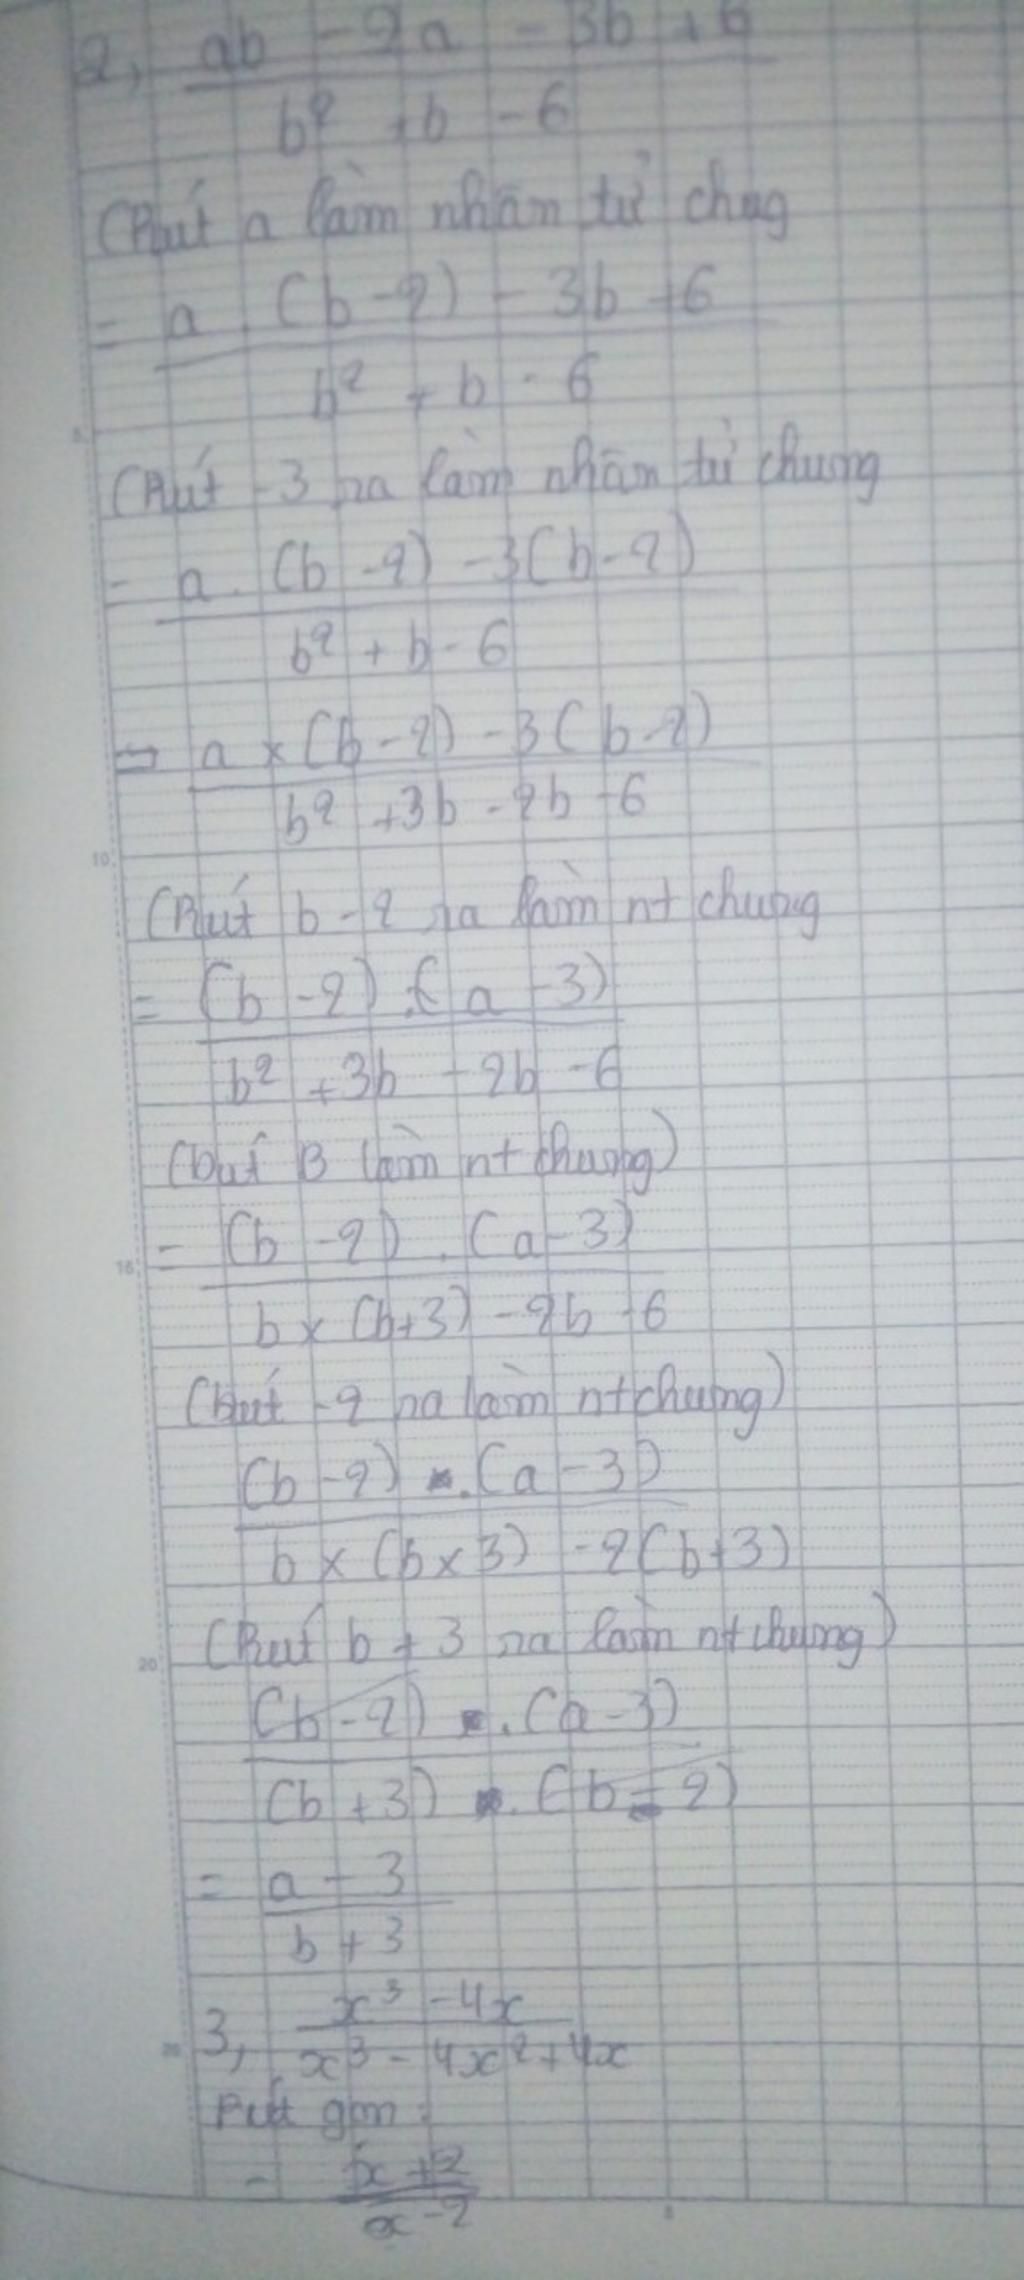 2, ab - 2a - 3b + 6
b² + b - 6
(Rút a làm nhân tử chug
= a . (b - 2) - 3b + 6
b² + b - 6
(Rút -3 ra làm nhân tử chung
= a . (b - 2) - 3(b - 2)
b² + b - 6
= a × (b - 2) - 3(b - 2)
b² + 3b - 2b - 6
(Rút b - 2 ra làm nt chung
= (b - 2) . (a - 3)
b² + 3b - 2b - 6
(Rút B làm nt chung)
= (b - 2) . (a - 3)
b × (b + 3) - 2b - 6
(Rút -2 ra làm nt chung)
(b - 2) . (a - 3)
b × (b × 3) - 2(b + 3)
(Rút b + 3 ra làm nt chung)
(b - 2) . (a - 3)
(b + 3) . (b - 2)
= a - 3
b + 3
3, x³ - 4x
x³ - 4x² + 4x
Rút gọn :
= x + 2
x - 2